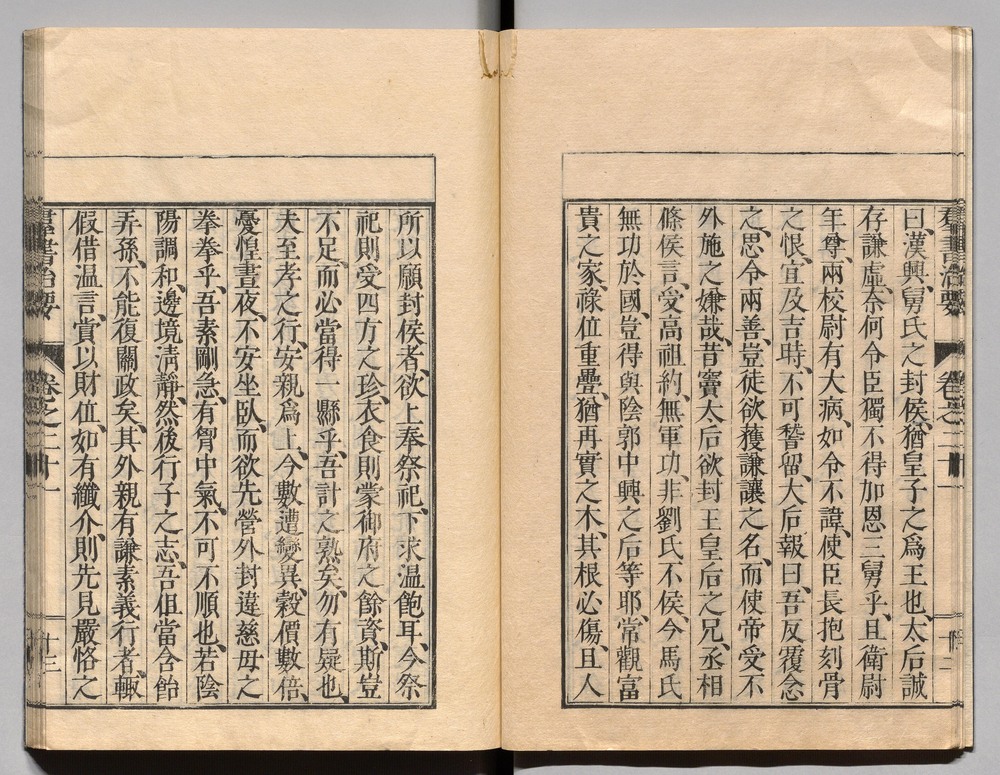 曰、漢興、舅氏之封侯、猶皇子之爲王也、太后誠
存謙虛、奈何令臣獨不得加恩三舅乎、且衛尉
年尊、兩校尉有大病、如令不諱、使臣長抱刻骨
之恨、宜及吉時、不可稽留、太后報曰、吾反覆念
之、思令兩善、豈徒欲獲謙讓之名、而使帝受不
外施之嫌哉、昔竇太后欲封王皇后之兄、丞相
條侯言、受高祖約、無軍功、非劉氏不侯、今馬氏
無功於國、豈得與陰郭中興之后等耶、常觀富
貴之家、祿位重疊、猶再實之木、其根必傷、且人
所以願封侯者、欲上奉祭祀、下求温飽耳、今祭
祀則受四方之珍、衣食則蒙御府之餘資、斯豈
不足、而必當得一縣乎、吾計之熟矣、勿有疑也、
夫至孝之行、安親爲上、今數遭變異、穀價數倍、
憂惶晝夜、不安坐臥、而欲先營外封、違慈母之
拳拳乎、吾素剛急、有胷中氣、不可不順也、若陰
陽調和、邊境淸靜、然後行子之志、吾但當含飴
弄孫、不能復關政矣、其外親有謙素義行者、輒
假借温言、賞以財位、如有纖介、則先見嚴恪之
羣書治要 卷之二十一 十三